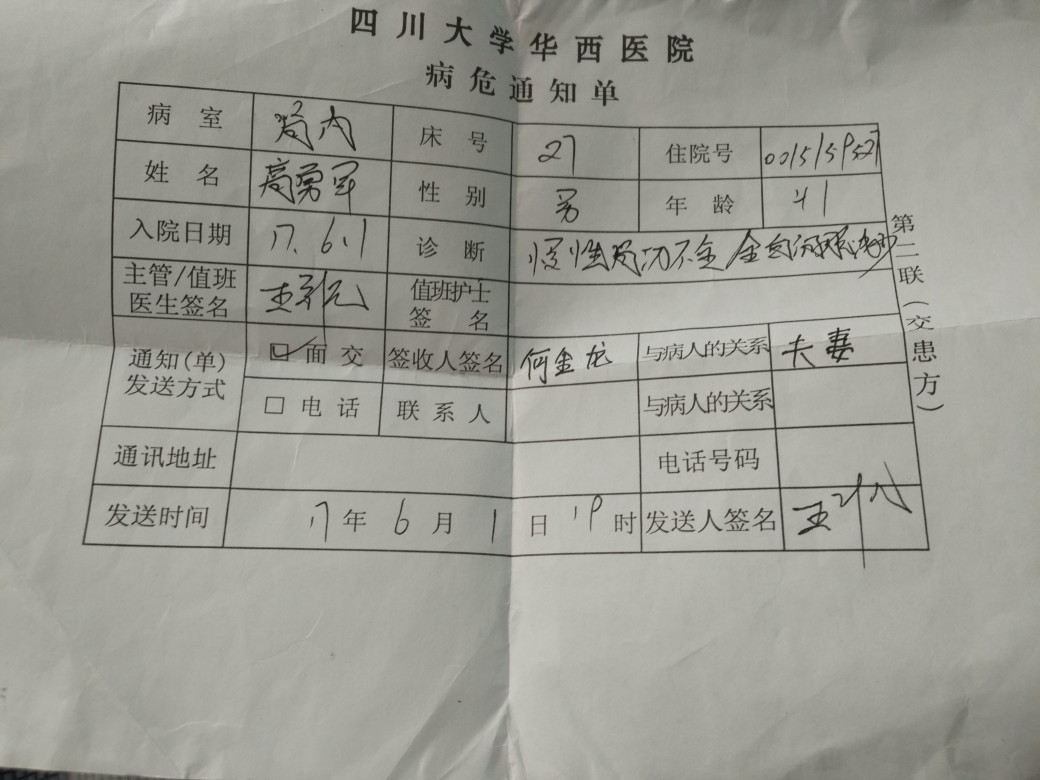 四川大学华西医院
病危通知单
病室 肾内 床号 27 住院号 0015159527
姓名 高勇军 性别 男 年龄 41
入院日期 17.6.1 诊断 慢性肾功不全 全血细胞减少
主管/值班医生签名 值班护士签名
通知(单)发送方式 ☑面交 签收人签名 何金龙 与病人的关系 夫妻
□电话 联系人 与病人的关系
通讯地址 电话号码
发送时间 17年6月1日19时 发送人签名
第二联(交患方)